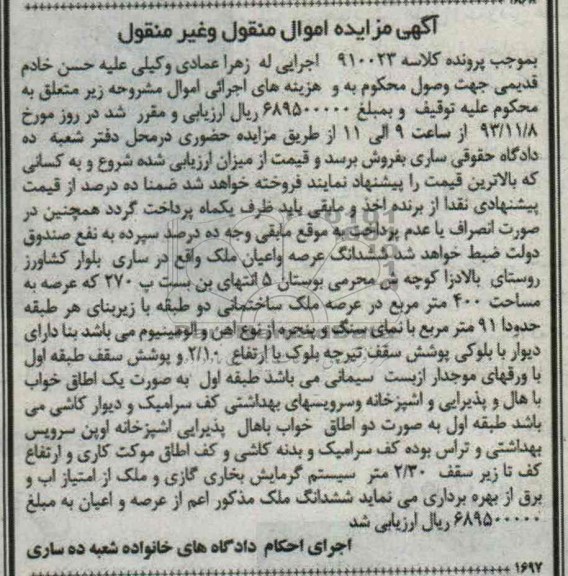 آگهی مزایده اموال منقول وغیر منقول
بموجب پرونده کلاسه ۹۱۰۰۲۳ اجرایی له زهرا عمادی وکیلی علیه حسن خادم
قدیمی جهت وصول محکوم به و هزینه های اجرائی اموال مشروحه زیر متعلق به
محکوم علیه توقیف و بمبلغ ۶۸۹۵۰۰۰۰۰ ریال ارزیابی و مقرر شد در روز مورخ
۹۳/۱۱/۸ از ساعت ۹ الی ۱۱ از طریق مزایده حضوری درمحل دفتر شعبه ده
دادگاه حقوقی ساری بفروش برسد و قیمت از میزان ارزیابی شده شروع و به کسانی
که بالاترین قیمت را پیشنهاد نمایند فروخته خواهد شد ضمنا ده درصد از قیمت
پیشنهادی نقدا از برنده اخذ و مابقی باید ظرف یکماه پرداخت گردد همچنین در
صورت انصراف یا عدم پرداخت به موقع مابقی وجه ده درصد سپرده به نفع صندوق
دولت ضبط خواهد شد ششدانگ عرصه واعیان ملک واقع در ساری بلوار کشاورز
روستای بالادزا کوچه محرمی بوستان ۵ انتهای بن بست پ ۲۷۰ که عرصه به
مساحت ۴۰۰ متر مربع در عرصه ملک ساختمانی دو طبقه با زیربنای هر طبقه
حدودا ۹۱ متر مربع با نمای سنگ و پنجره از نوع اهن و الومینیوم می باشد بنا دارای
دیوار با بلوکی پوشش سقف تیرچه بلوک با ارتفاع ۲/۱۰ و پوشش سقف طبقه اول
با ورقهای موجدار ازبست سیمانی می باشد طبقه اول به صورت یک اطاق خواب
با هال و پذیرایی و اشپزخانه وسرویسهای بهداشتی کف سرامیک و دیوار کاشی می
باشد طبقه اول به صورت دو اطاق خواب باهال پذیرایی اشپزخانه اوپن سرویس
بهداشتی و تراس بوده کف سرامیک و بدنه کاشی و کف اطاق موکت کاری و ارتفاع
کف تا زیر سقف ۲/۳۰ متر سیستم گرمایش بخاری گازی و ملک از امتیاز اب و
برق از بهره برداری می نماید ششدانگ ملک مذکور اعم از عرصه و اعیان به مبلغ
۶۸۹۵۰۰۰۰۰ ریال ارزیابی شد
اجرای احکام دادگاه های خانواده شعبه ده ساری
۱۶۹۷